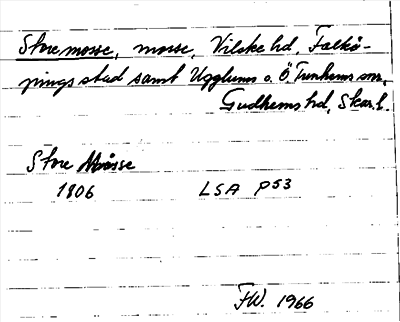 Store mosse, mosse, Vilske hd, Falkö-
pings stad samt Ugglums o. Ö Tunhems snr,
Gudhems hd, Skar. l.
Store Måsse
1806 LSA P53
FW. 1966